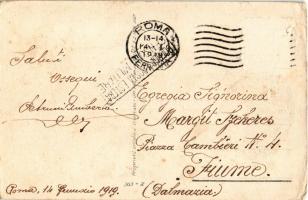 Saluti
Ossequi
Roma, 14 Gennaio 1919.
ROMA
13-14
FERROVIA
Egregia Signorina
Margit Szekeres
Piazza Cambieri N. 4
Fiume
(Dalmazia)